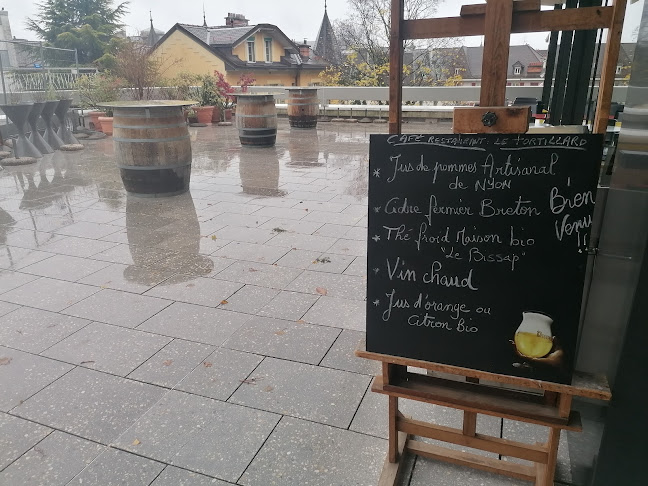 CAFÉ RESTAURANT: LE TORTILLARD
* Jus de pommes Artisanal
de NYON
* Cidre fermier Breton
* Thé froid Maison bio
"Le Bissap"
* Vin chaud
* Jus d'orange ou
Citron bio
Bien
Venu
!!